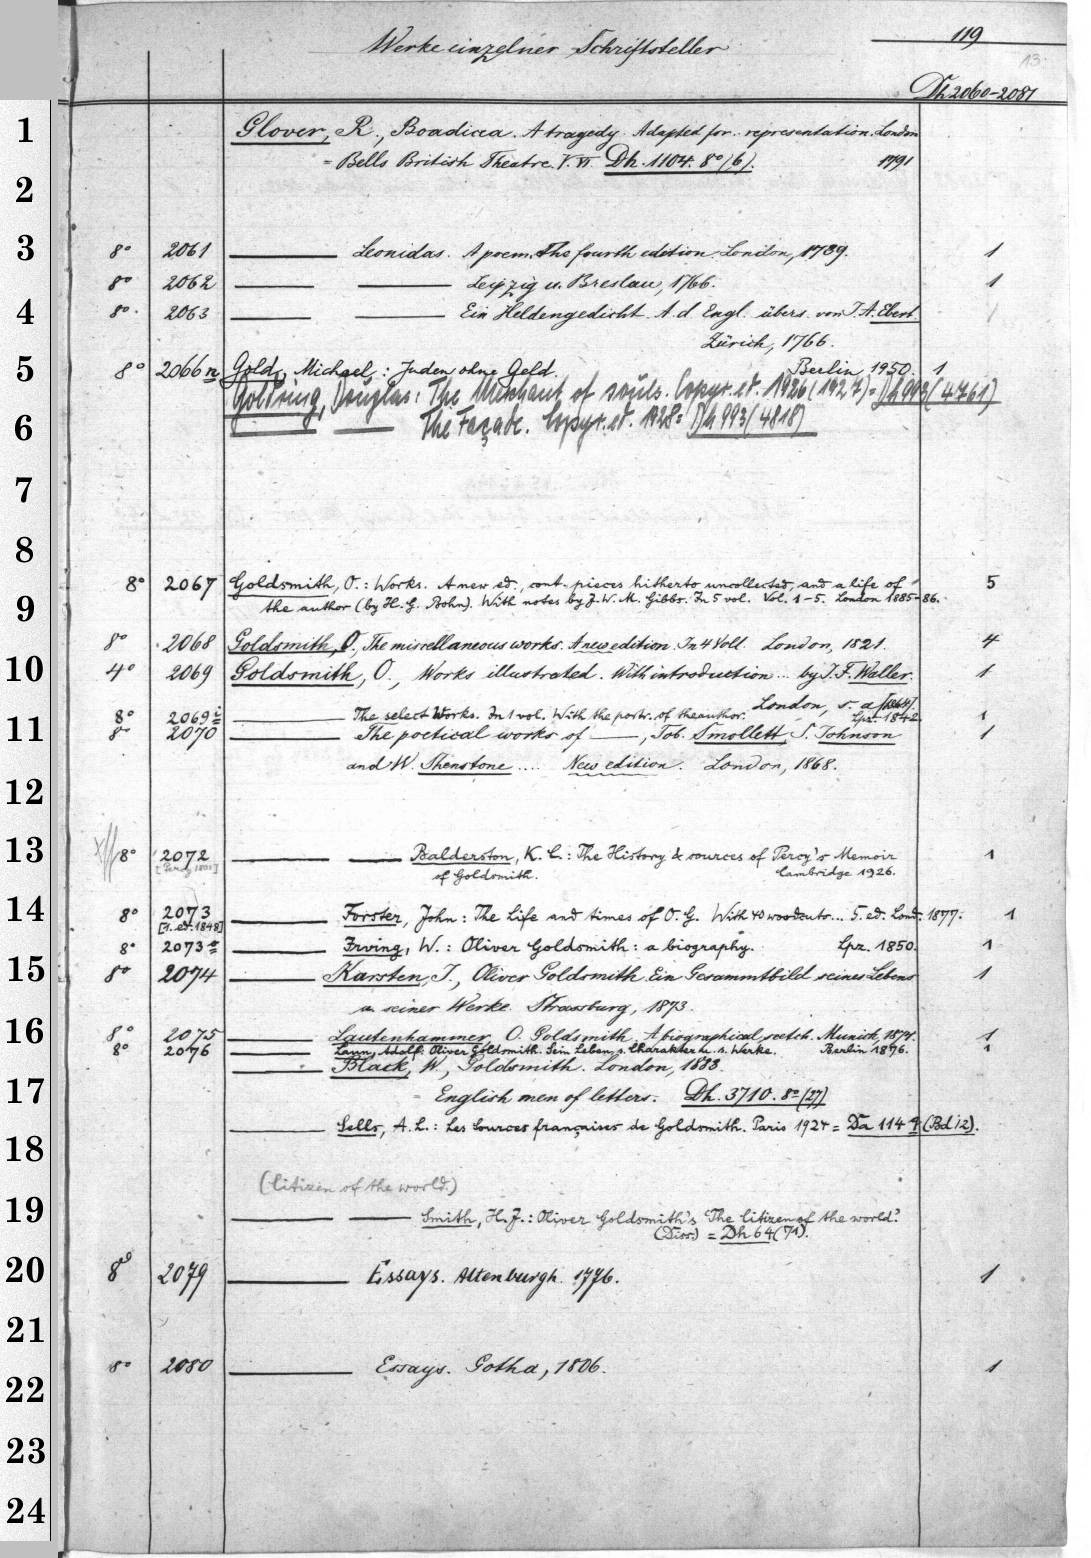 119
Werke einzelner Schriftsteller
13.
Dh 2060-2081
1 Glover, R., Boadicea. A tragedy. Adapted for representation. London
= Bells British Theatre. V. VI. Dh. 1104. 8° (6). 1791
2
3 8° 2061 ——— Leonidas. A poem. The fourth edition. London, 1739. 1
8° 2062 ——— ——— Leipzig u. Breslau, 1766. 1
4 8° 2063 ——— ——— Ein Heldengedicht. A. d. Engl. übers. von J. A. Ebert.
Zürich, 1766.
5 8° 2066 n Gold, Michael: Juden ohne Geld. Berlin 1950. 1
Goldring, Douglas: The Merchant of souls. Copyr. ed. 1926 (1927) = Dh 993 (4761)
6 ——— ——— The Façade. Copyr. ed. 1928 = Dh 993 (4818)
7
8
8° 2067 Goldsmith, O.: Works. A new ed., cont. pieces hitherto uncollected, and a life of 5
9 the author (by H. G. Bohn). With notes by J. W. M. Gibbs. In 5 vol. Vol. 1-5. London 1885-86.
8° 2068 Goldsmith, O., The miscellaneous works. A new edition. In 4 Voll. London, 1821. 4
10 4° 2069 Goldsmith, O., Works illustrated. With introduction ... by J. F. Waller. 1
London, s. a. [1864].
8° 2069 i ——— The select Works. In 1 vol. With the portr. of the author. Lpz. 1842 1
11 8° 2070 ——— The poetical works of ——, Tob. Smollett, S. Johnson 1
and W. Shenstone .... New edition. London, 1868.
12
13 8° 2072 ——— ——— Balderston, K. C.: The History & sources of Percy's Memoir 1
[Percy 1801] of Goldsmith. Cambridge 1926.
14 8° 2073 ——— Forster, John: The Life and times of O. G. With 40 woodcuts... 5. ed. Lond. 1877. 1
[1. ed. 1848]
8° 2073 a ——— Irving, W.: Oliver Goldsmith: a biography. Lpz. 1850. 1
15 8° 2074 ——— Karsten, J., Oliver Goldsmith. Ein Gesammtbild seines Lebens 1
u. seiner Werke. Strassburg, 1873.
16 8° 2075 ——— Lautenhammer, O. Goldsmith. A biographical scetch. Munich, 1874. 1
8° 2076 ——— Laun, Adolf: Oliver Goldsmith. Sein Leben, s. Charakter u. s. Werke. Berlin 1876. 1
——— Black, W., Goldsmith. London, 1883.
17 English men of letters. Dh. 3710. 8° (27)
——— Sells, A. L.: Les Sources françaises de Goldsmith. Paris 1924 = Da 114 q (Bd 12).
18
(Citizen of the world.)
19 ——— ——— Smith, H. J.: Oliver Goldsmith's 'The Citizen of the world'.
(Diss.) = Dh 64 (71).
20 8° 2079 ——— Essays. Altenburgh 1776. 1
21
8° 2080 ——— Essays. Gotha, 1806. 1
22
23
24